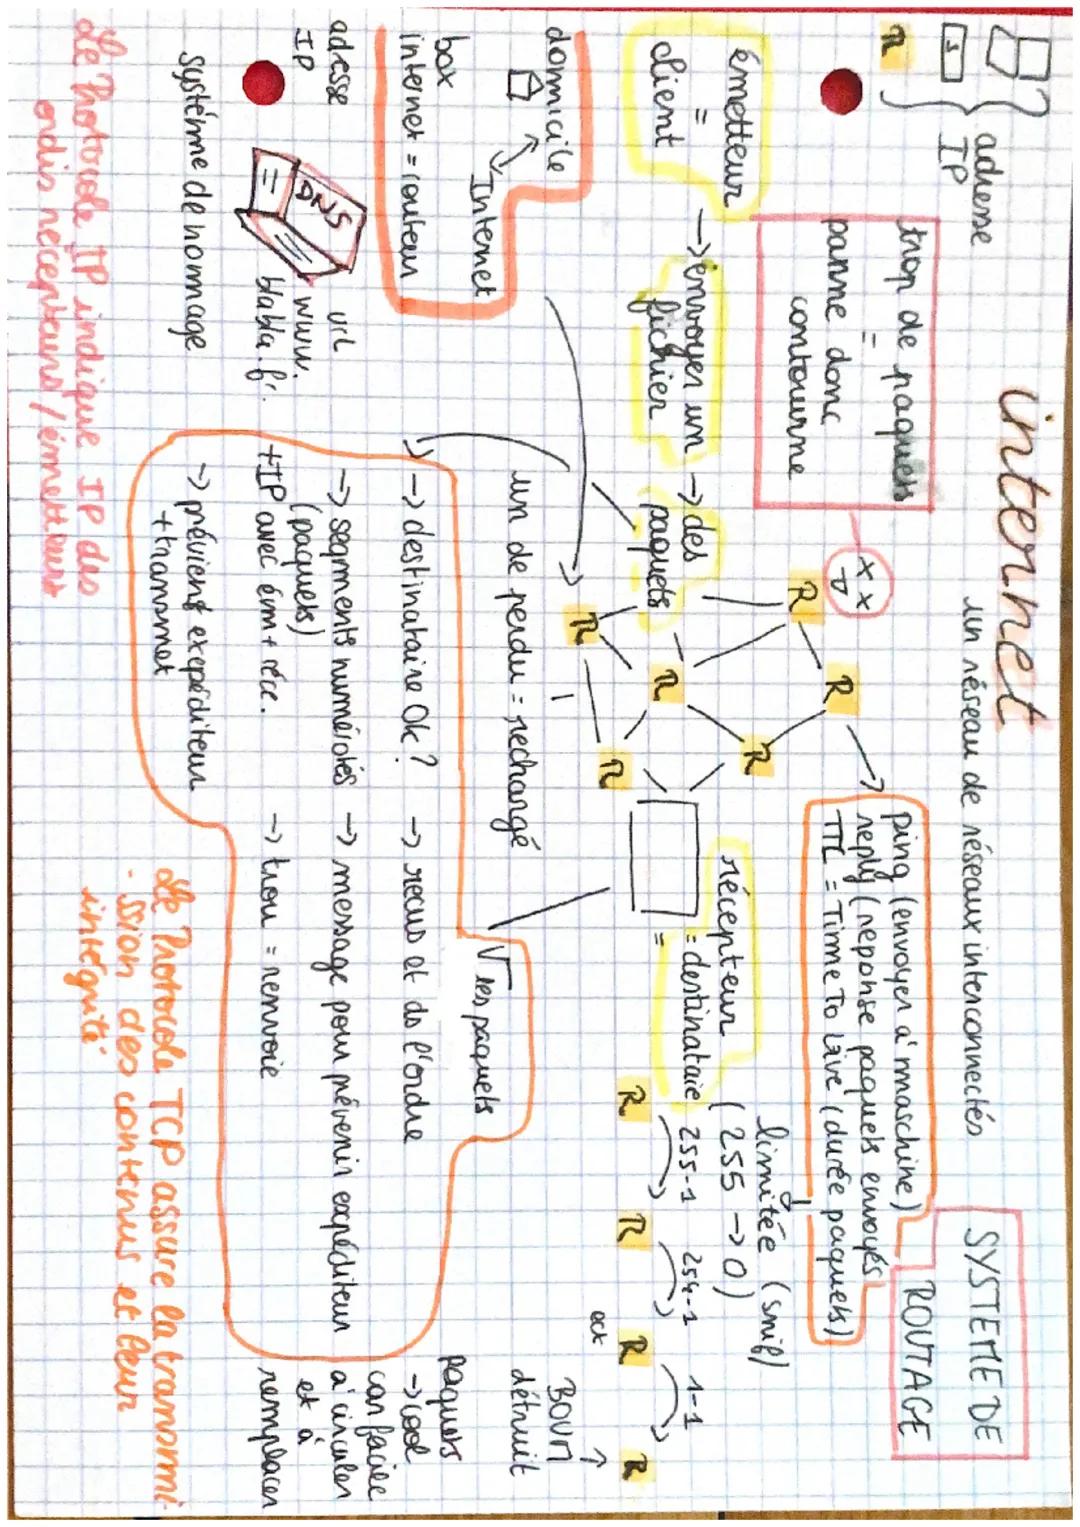 internet
un réseau de réseaux interconnectés
SYSTEME DE
ROUTAGE
adresse
IP
S
R
trop de paquets
=
panne donc
contourne
x x
ping (envoyer à maschine)
reply (reponse paquets envoyés
TTL = Time To Live (durée paquets)
limitée (snif)
(255 -> 0)
émetteur
=
client
-> envoyer un
fichier
-> des
paquets
R
R
R
R
R
R
récepteur
= destinataie
=
R
255-1
R
254-1
R
1-1
R
BOUM
détruit
domicile
Internet
box
internet = routeur
un de perdu = rechangé
√ les paquets
-> destinataire Ok?
-> recus et ds l'ordre
-> segments numérotés
(paquets)
-> message pour prévenir expéditeur
+IP avec ém + réce.
-> trou = renvoie
-> prévient expéditeur
+ transmet
paquets
-> cool
car facile
à circuler
et à
remplacer
adesse
IP
DNS
=
url
www.
blabla.fr.
système de nomage
Le Protocole IP indique IP des
ordis recepteurs / émetteurs
Le Protocole TCP assure la transmi-
-ssion des contenus et leur
intégrité.